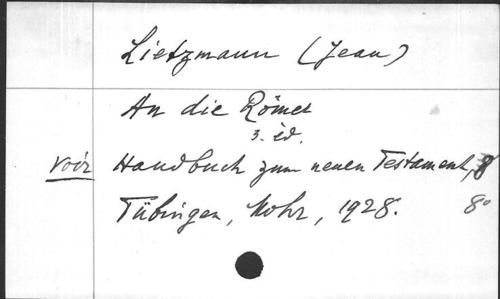 Lietzmann (Jean)
An die Römer
3. éd.
voir Handbuch zum neuen Testament, 8
Tübingen, Mohr, 1928. 8°